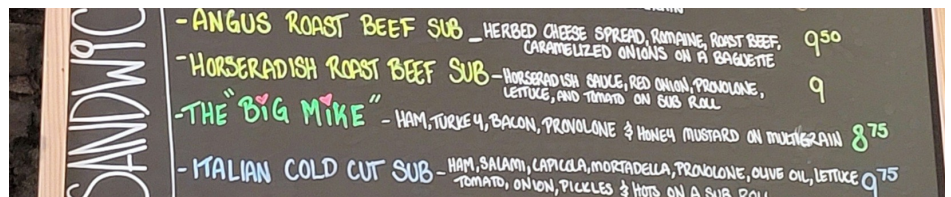 SANDWIC
-ANGUS ROAST BEEF SUB - HERBED CHEESE SPREAD, ROMAINE, ROAST BEEF, 9⁵⁰
CARAMELIZED ONIONS ON A BAGUETTE
-HORSERADISH ROAST BEEF SUB - HORSERADISH SAUCE, RED ONION, PROVOLONE, 9
LETTUCE, AND TOMATO ON SUB ROLL
-THE "BiG MiKE" - HAM, TURKEY, BACON, PROVOLONE & HONEY MUSTARD ON MULTIGRAIN 8⁷⁵
-ITALIAN COLD CUT SUB - HAM, SALAMI, CAPICOLA, MORTADELLA, PROVOLONE, OLIVE OIL, LETTUCE 9⁷⁵
TOMATO, ONION, PICKLES & HOTS ON A SUB ROLL